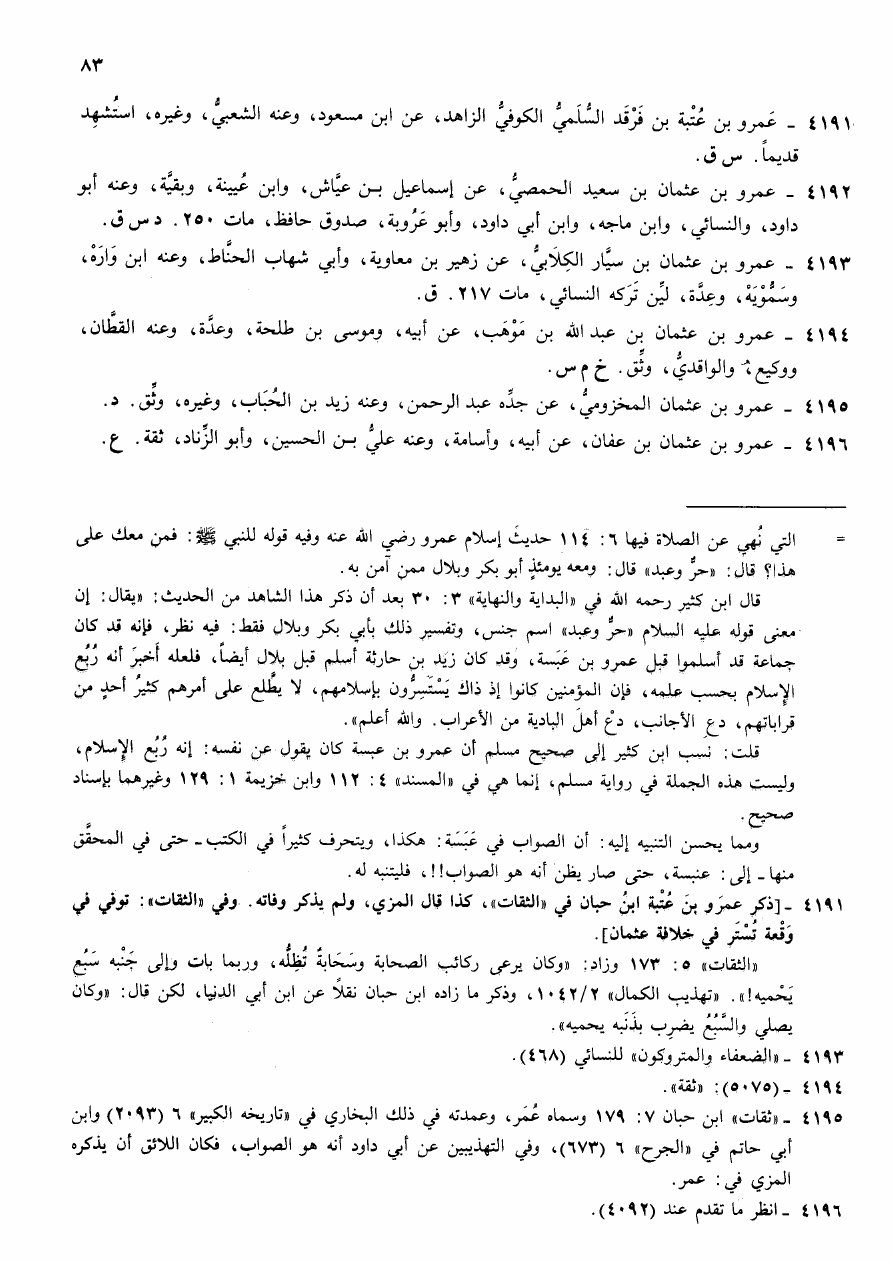 ٨٣
٤١٩١ ـ عَمرو بن عُتْبة بن فَرْقَد السُّلَميُّ الكوفيُّ الزاهد، عن ابن مسعود، وعنه الشعبيُّ، وغيره، استُشهِد
قديماً. س ق.
٤١٩٢ ـ عمرو بن عثمان بن سعيد الحمصيُّ، عن إسماعيل بـن عيَّاش، وابن عُيينة، وبقيَّة، وعنه أبو
داود، والنسائي، وابن ماجه، وابن أبي داود، وأبو عَرُوبة، صدوق حافظ، مات ٢٥٠. د س ق.
٤١٩٣ ـ عمرو بن عثمان بن سيَّار الكِلَابيُّ، عن زهير بن معاوية، وأبي شهاب الحنَّاط، وعنه ابن وَارَهْ،
وسَمُّوْيَهْ، وعِدَّة، ليِّن تَرَكه النسائي، مات ٢١٧. ق.
٤١٩٤ ـ عمرو بن عثمان بن عبد الله بن مَوْهَب، عن أبيه، وموسى بن طلحة، وعدَّة، وعنه القطَّان،
ووكيع، والواقديُّ، وثِّق. خ م س.
٤١٩٥ ـ عمرو بن عثمان المخزوميُّ، عن جدِّه عبد الرحمن، وعنه زيد بن الحُبَاب، وغيره، وثِّق. د.
٤١٩٦ ـ عمرو بن عثمان بن عفان، عن أبيه، وأسامة، وعنه عليُّ بـن الحسين، وأبو الزِّناد، ثقة. ع.
= التي نُهي عن الصلاة فيها ٦: ١١٤ حديثَ إسلام عمرو رضي الله عنه وفيه قوله للنبي ﷺ: فمن معك على
هذا؟ قال: «حرٌّ وعبد» قال: ومعه يومئذٍ أبو بكر وبلال ممن آمن به.
قال ابن كثير رحمه الله في «البداية والنهاية» ٣: ٣٠ بعد أن ذكر هذا الشاهد من الحديث: «يقال: إن
معنى قوله عليه السلام «حرٌّ وعبد» اسم جنس، وتفسير ذلك بأبي بكر وبلال فقط: فيه نظر، فإنه قد كان
جماعة قد أسلموا قبل عمرو بن عَبَسة، وقد كان زيد بن حارثة أسلم قبل بلال أيضاً، فلعله أَخبرَ أنه رُبُع
الإسلام بحسب علمه، فإن المؤمنين كانوا إذ ذاك يَسْتَسِرُّون بإسلامهم، لا يطَّلع على أمرهم كثيرُ أحدٍ من
قراباتهم، دعِ الأجانب، دعْ أهلَ البادية من الأعراب. والله أعلم».
قلت: نَسب ابن كثير إلى صحيح مسلم أن عمرو بن عبسة كان يقول عن نفسه: إنه رُبُع الإسلام،
وليست هذه الجملة في رواية مسلم، إنما هي في «المسند» ٤: ١١٢ وابن خزيمة ١: ١٢٩ وغيرهما بإسناد
صحيح.
ومما يحسن التنبيه إليه: أن الصواب في عَبَسَة: هكذا، ويتحرف كثيراً في الكتب ـ حتى في المحقَّق
منها ـ إلى: عنبسة، حتى صار يظن أنه هو الصواب!!، فليتنبه له.
٤١٩١ ـ [ذكر عمرَو بنَ عُتْبة ابنُ حبان في «الثقات»، كذا قال المزي، ولم يذكر وفاته. وفي «الثقات»: توفي في
وَقْعة تُسْتَر في خلافة عثمان].
«الثقات» ٥: ١٧٣ وزاد: «وكان يرعى ركائب الصحابة وسَحَابةٌ تُظِلُّه، وربما بات وإلى جَنْبه سَبُع
يَحْميه!». «تهذيب الكمال» ١٠٤٢/٢، وذكر ما زاده ابن حبان نقلاً عن ابن أبي الدنيا، لكن قال: «وكان
يصلي والسَّبُعُ يضرب بذَنَبه يحميه».
٤١٩٣ ـ «الضعفاء والمتروكون» للنسائي (٤٦٨).
٤١٩٤ ـ (٥٠٧٥): «ثقة».
٤١٩٥ ـ «ثقات» ابن حبان ٧: ١٧٩ وسماه عُمَر، وعمدته في ذلك البخاري في «تاريخه الكبير» ٦ (٢٠٩٣) وابن
أبي حاتم في «الجرح» ٦ (٦٧٣)، وفي التهذيبين عن أبي داود أنه هو الصواب، فكان اللائق أن يذكره
المزي في: عمر.
٤١٩٦ ـ انظر ما تقدم عند (٤٠٩٢).